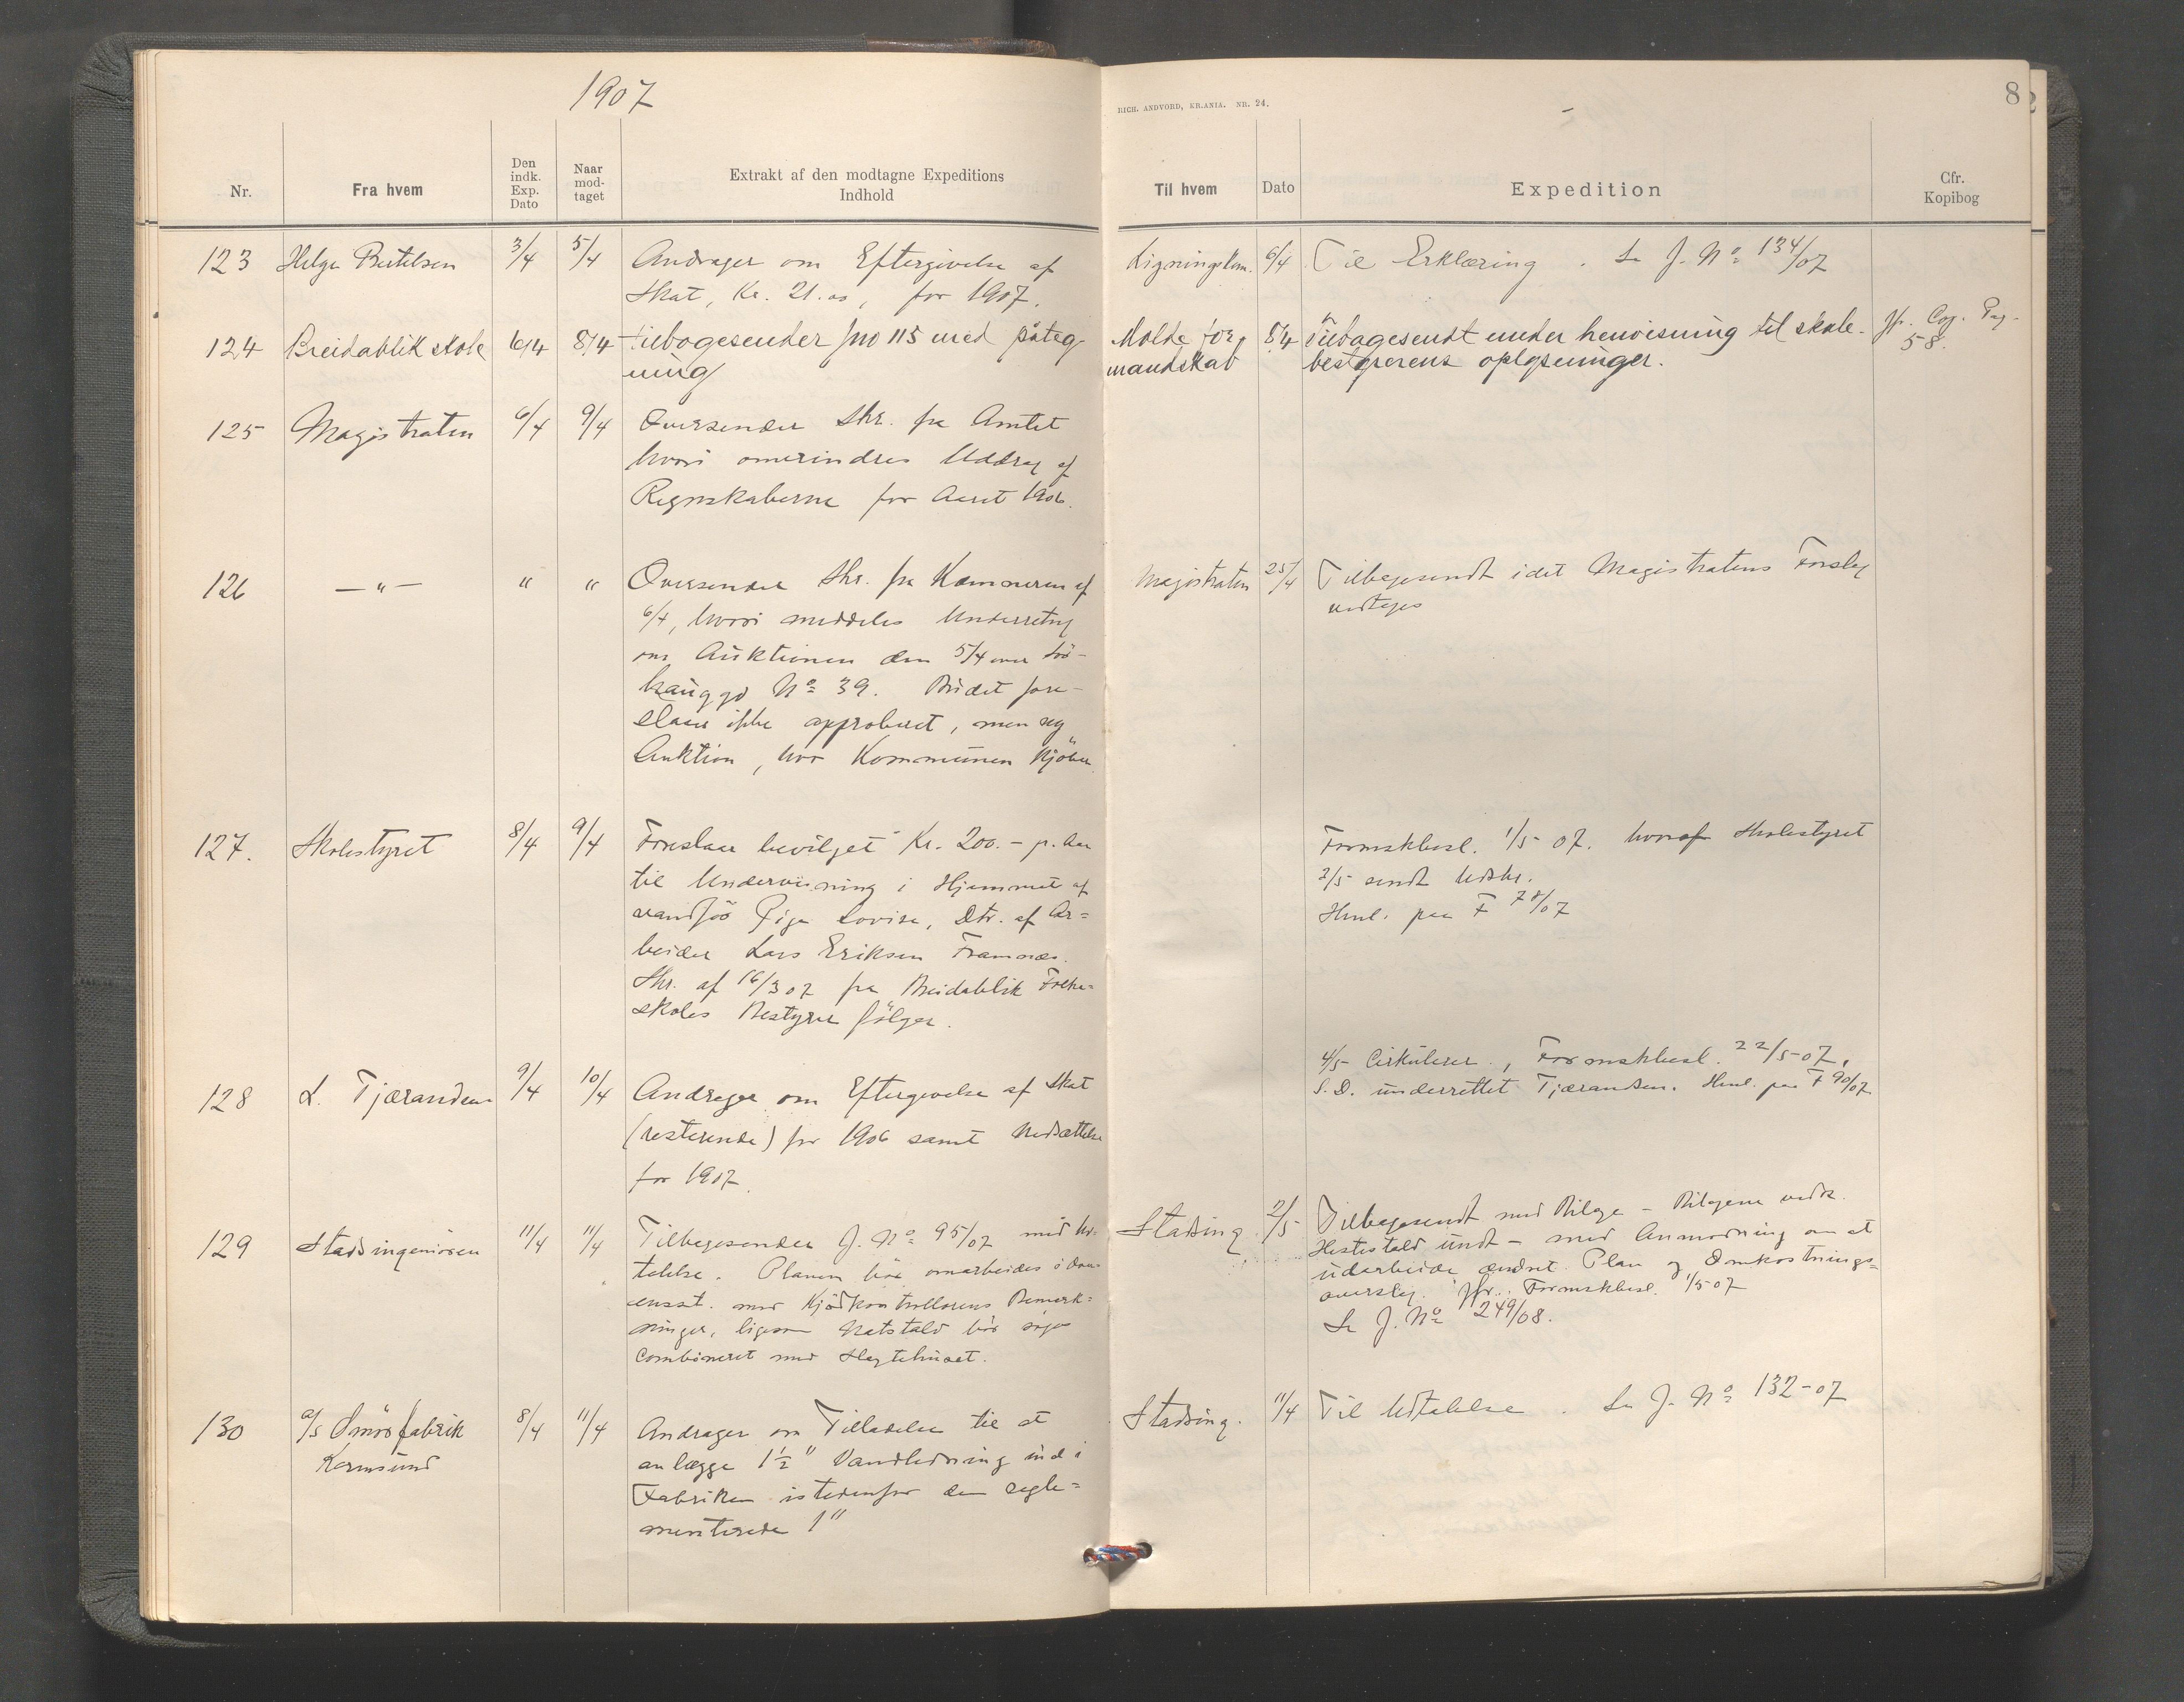 1907
RICH. ANDVORD, KR.ANIA. NR. 24.
8
Nr.
Fra hvem
Den indk. Exp. Dato
Naar mod-taget
Extrakt af den modtagne Expeditions
Indhold
Til hvem
Dato
Expedition
Cfr.
Kopibog
123 Helga Bertelsen 3/4 5/4 Andrager om Eftergivelse af
Skat, Kr. 21.00, for 1907.
Ligningskom. 6/4 Til Erklæring . Se J. No 134/07
124 Breidablik skole 6/4 8/4 tilbagesender jno 115 med påteg-
ning
Molde for-
mandskab
8/4 Tilbagesendt under henvisning til skole-
bestyrerens oplysninger.
Jfr. Cop. Pag.
58.
125 Magistraten 6/4 9/4 Oversender Skr. fra Amtet
hvori omerindres Uddrag af
Regnskaberne for Aaret 1906.
126 — " — " " Oversender Skr. fra Kæmneren af
6/4, hvori meddeles Underretng
om Auktionen den 5/4 over
No 39. Budet fore-
slaaes ikke approberet, men ny
Auktion, hvor Kommunen kjöber.
Magistraten 25/4 Tilbagesendt idet Magistratens Forslag
vedtages
127. Skolestyret 8/4 9/4 Foreslaar bevilget Kr. 200.- pr. Aar
til Undervisning i Hjemmet af
vanför Pige Lovise, Dtr. af Ar=
beider Lars Eriksen Framnæs.
Skr. af 16/3 07 fra Breidablik Folke=
skoles Bestyrer fölger.
Formskbesl. 1/5 07. hvoraf Skolestyret
2/5 sendt Udskr.
Henl. paa F 78/07
128 L. Tjærandsen 9/4 10/4 Andrager om Eftergivelse af Skat
(resterende) for 1906 samt Nedsættelse
for 1907.
4/5 Cirkulerer., Formskbesl. 22/5-07,
S. D. underrettet Tjærandsen. Henl. paa F 90/07
129 Stadsingeniören 11/4 11/4 Tilbagesender J. No 95/07 med Ud-
talelse. Planen bör omarbeides i Over-
ensst. med Kjödkontrollörens Bemærk=
ninger, ligesom Hestestald bör
combineret med Slagtehuset.
Stadsing. 2/5 Tilbagesendt med Bilage - Bilagene vedk.
Hestestald undt - med Anmodning om at
udarbeide ændret Plan og Omkostnings=
overslag. Jfr. Formskbesl. 1/5-07
Se J. No 249/08.
130 A/s Smörfabrik
Karmsund
8/4 11/4 Andrager om Tilladelse til at
anlægge 1½" Vandledning ind i
Fabriken istedenfor den regle=
menterede 1"
Stadsing. 11/4 Til Udtalelse . Se J. No 132-07